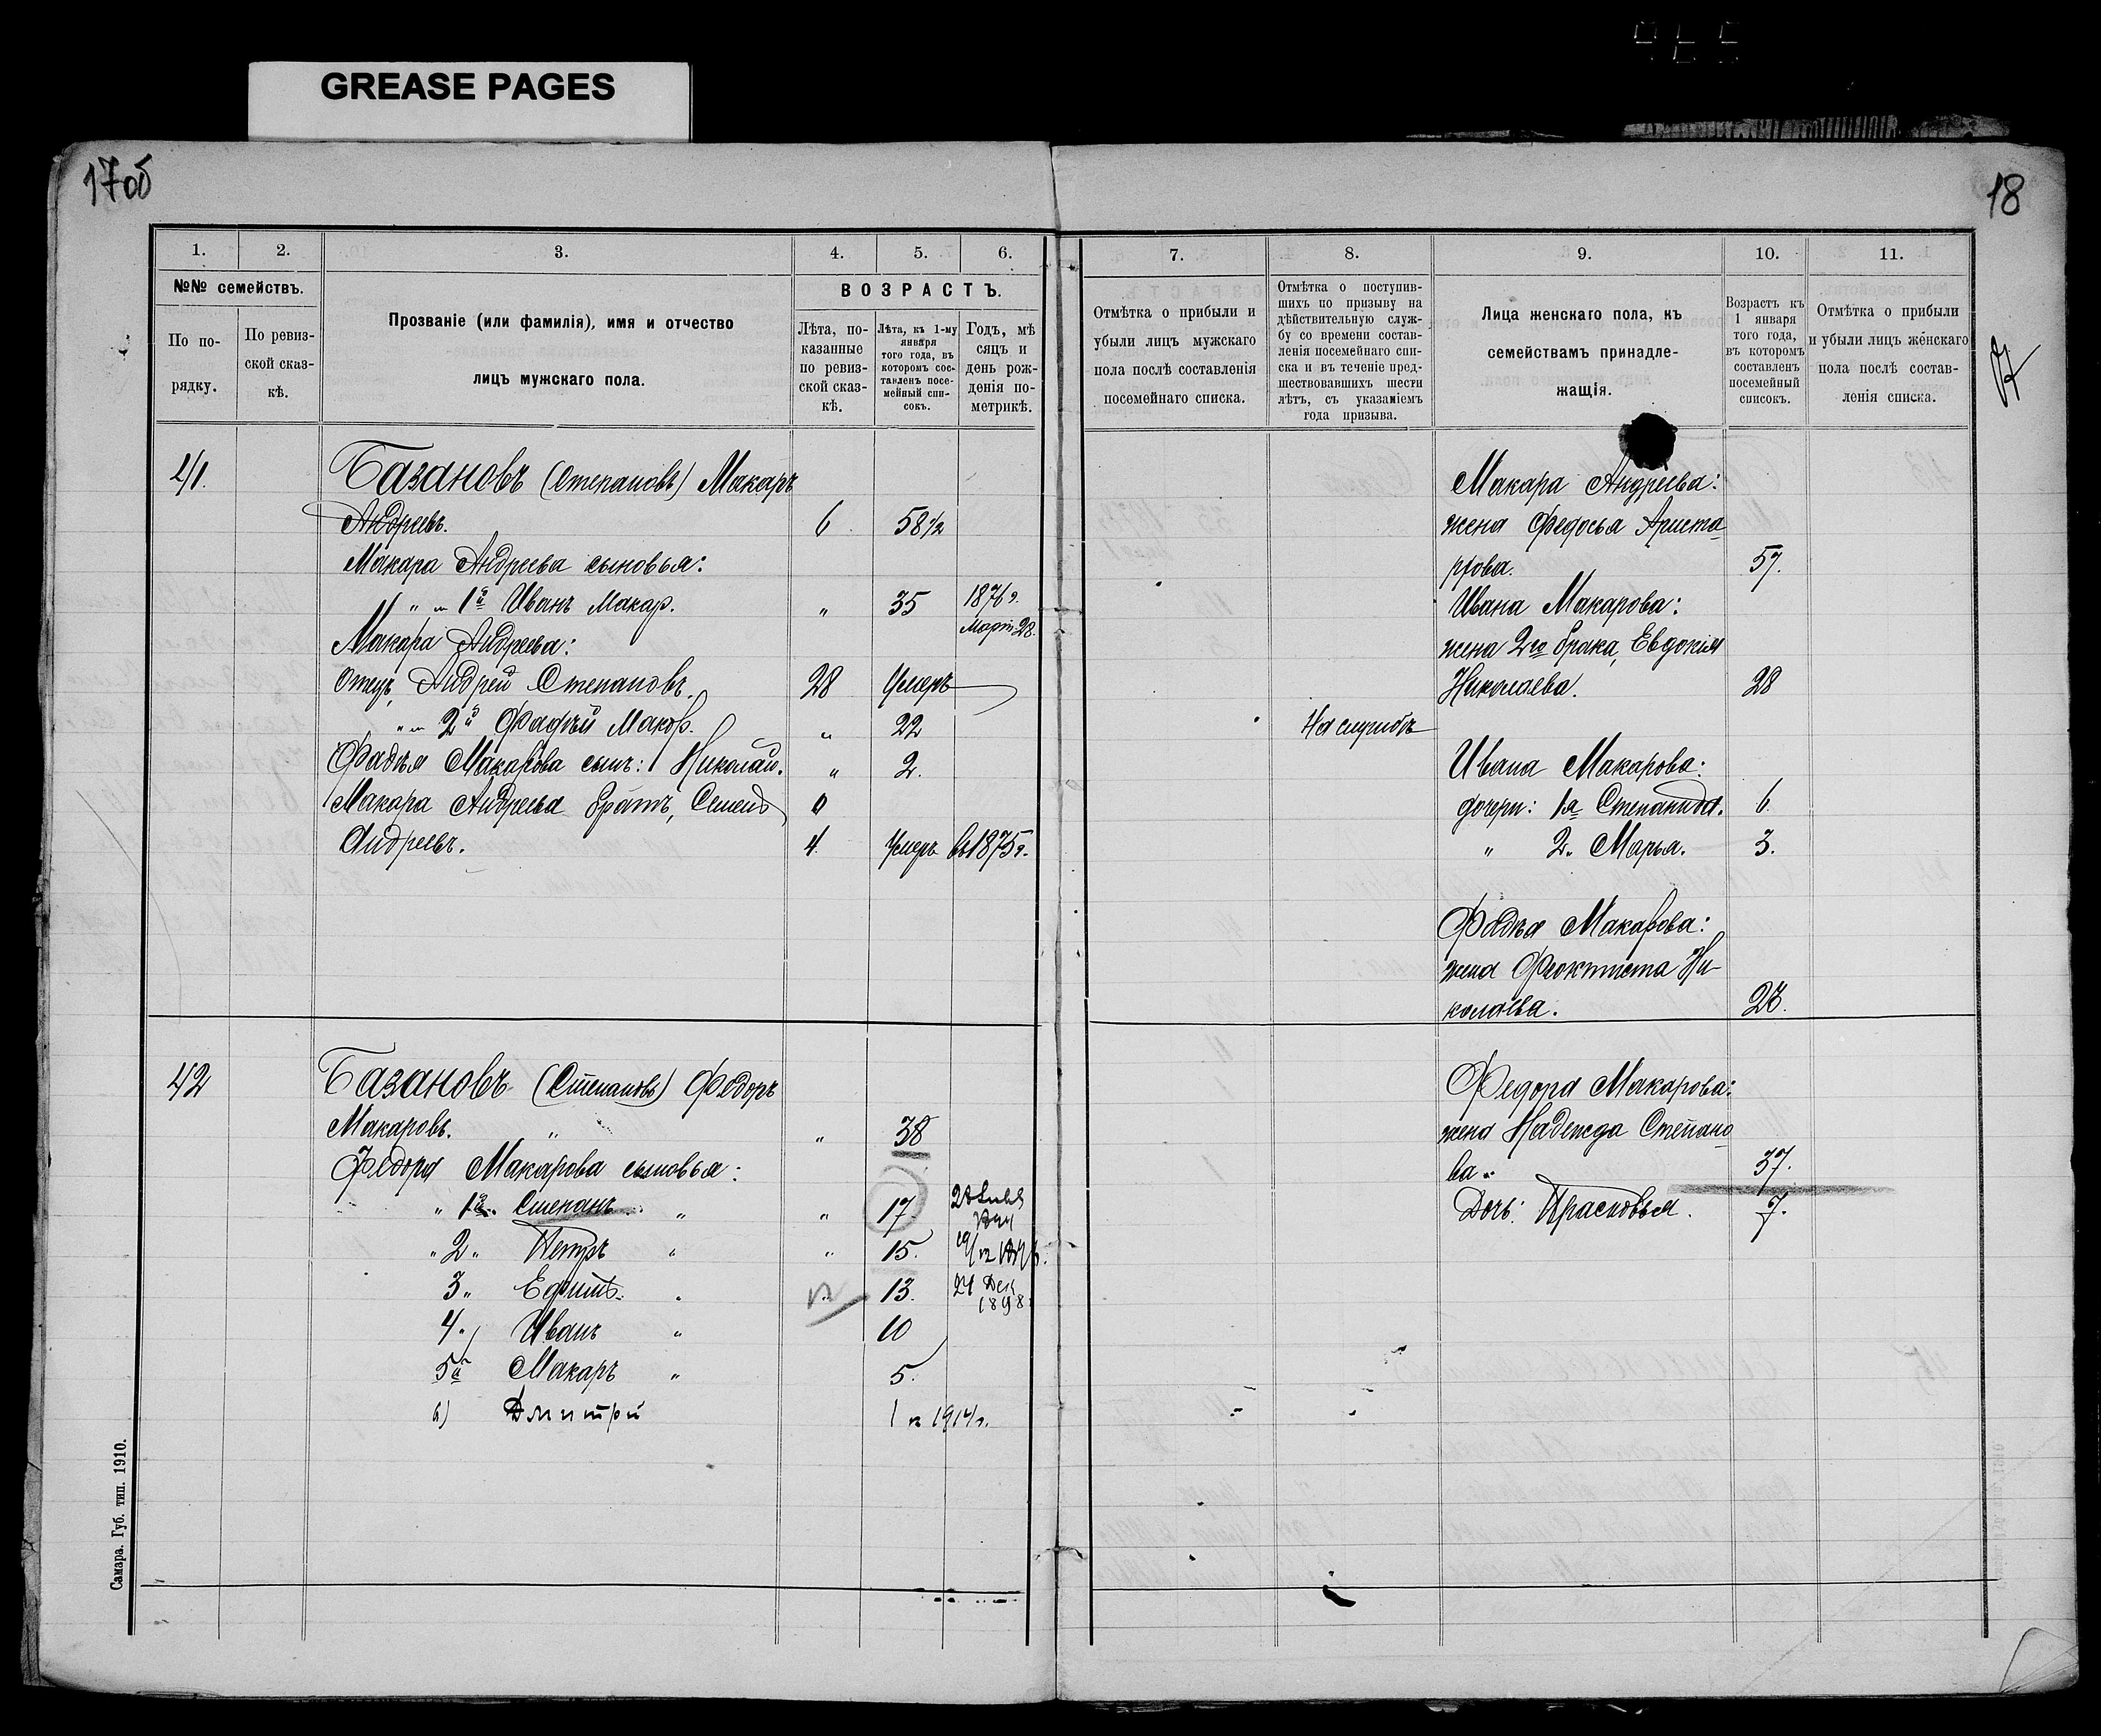 GREASE PAGES
17об
18
1.
2.
3.
4.
5.
6.
№№ семействъ.
ВОЗРАСТЪ.
По по-
рядку.
По ревиз-
ской сказ-
кѣ.
Прозваніе (или фамилія), имя и отчество
лицъ мужскаго пола.
Лѣта, по-
казанные
по ревиз-
ской сказ-
кѣ.
Лѣта, къ 1-му
января
того года, въ
которомъ сос-
тавленъ посе-
мейный спи-
сокъ.
Годъ, мѣ
сяцъ и
день рож-
денія по-
метрикѣ.
41.
Базановъ (Степановъ) Макаръ
Андреевъ. 6 58 1/2
Макара Андреева сыновья:
" " 1й Иванъ Макар. " 35 1876 г.
Март 28.
Макара Андреева:
Отецъ, Андрей Степановъ. 28 Умеръ
" " 2й Фадѣй Макар. " 22
Фадѣя Макарова сынъ: Николай. " 2.
Макара Андреева братъ, Семенъ
Андреевъ. 4. Умеръ въ 1875 г.
42
Базановъ (Степановъ) Федоръ
Макаровъ. " " 38
Федора Макарова сыновья:
" 1й Степанъ " " 17.
" 2 " Петръ " " 15.
3 " Ефимъ " 13. 21 Дек
1898
4. Иванъ " 10
5й Макаръ " 5.
6) Дмитрй 1 в 1914 г.
Самара. Губ. тип. 1910.
7.
8.
9.
10.
11.
Отмѣтка о прибыли и
убыли лицъ мужскаго
пола послѣ составленія
посемейнаго списка.
Отмѣтка о поступив-
шихъ по призыву на
дѣйствительную служ-
бу со времени состав-
ленія посемейнаго спи-
ска и въ теченіе пред-
шествовавшихъ шести
лѣтъ, съ указаніемъ
года призыва.
Лица женскаго пола, къ
семействамъ принадле-
жащія.
Возрастъ къ
1 января
того года,
въ которомъ
составленъ
посемейный
списокъ.
Отмѣтка о прибыли
и убыли лицъ женскаго
пола послѣ состав-
ленія списка.
Макара Андреева:
жена Федосья Ариста
рхова. 57.
Ивана Макарова:
жена 2го брака, Евдокия
Николаева. 28
На службѣ
Ивана Макарова:
дочери: 1я Степанида. 6.
" 2. Марья. 3.
Фадѣя Макарова:
жена Феоктиста Ни-
колаева. 23.
Федора Макарова:
жена Надежда Степано
ва. 37.
Дочь: Прасковья. 7.